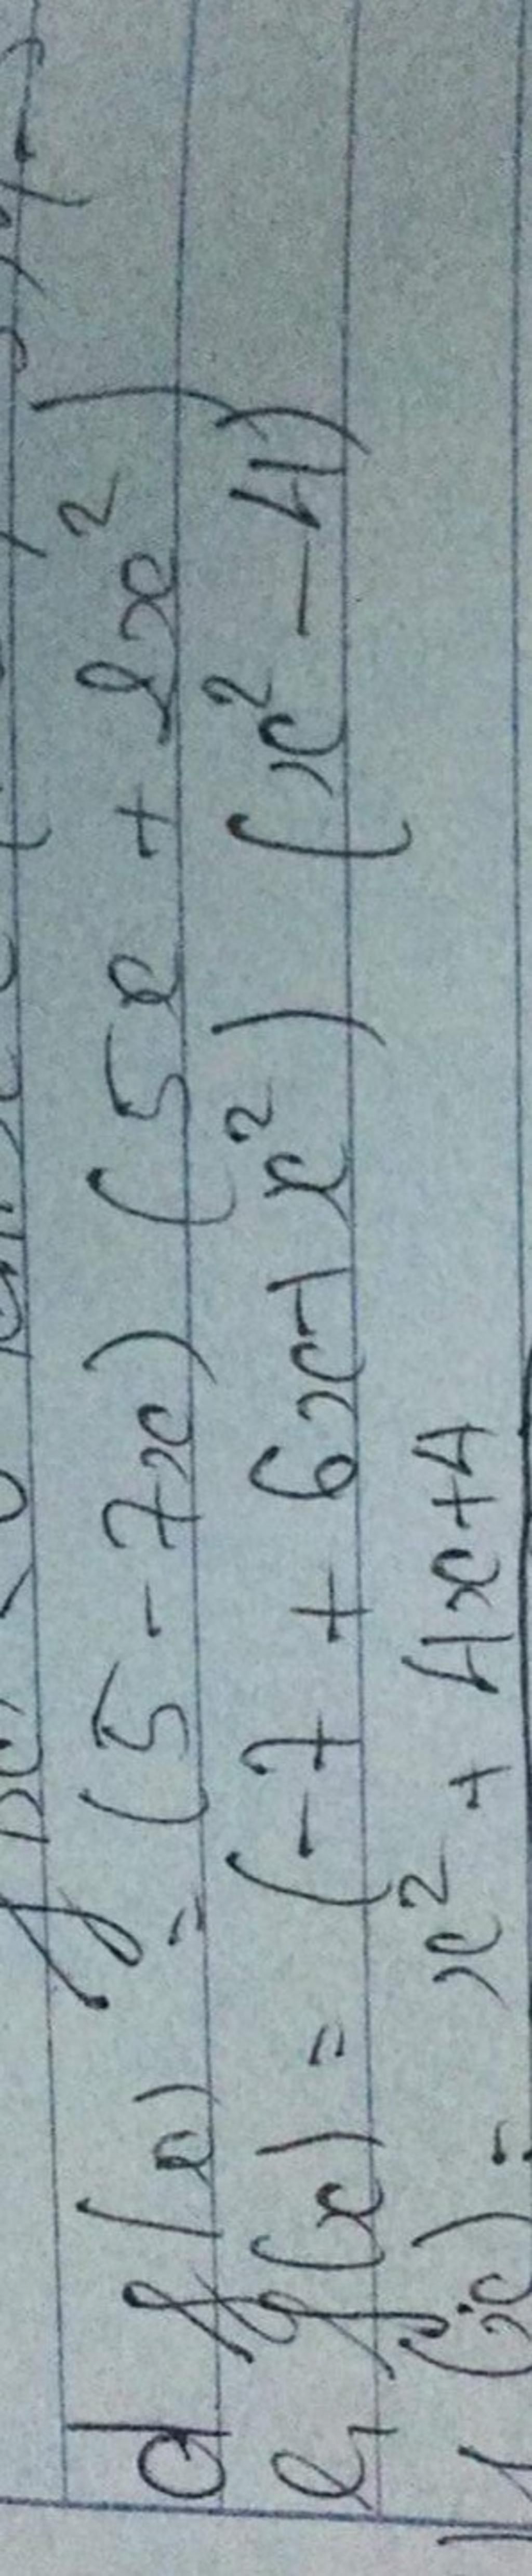 d f(x) = (5 - 7x) (5x + 2x²)
e, g(x) = (-7 + 6x + x²) (x² - 4)
(x) = x² + 4x + 4